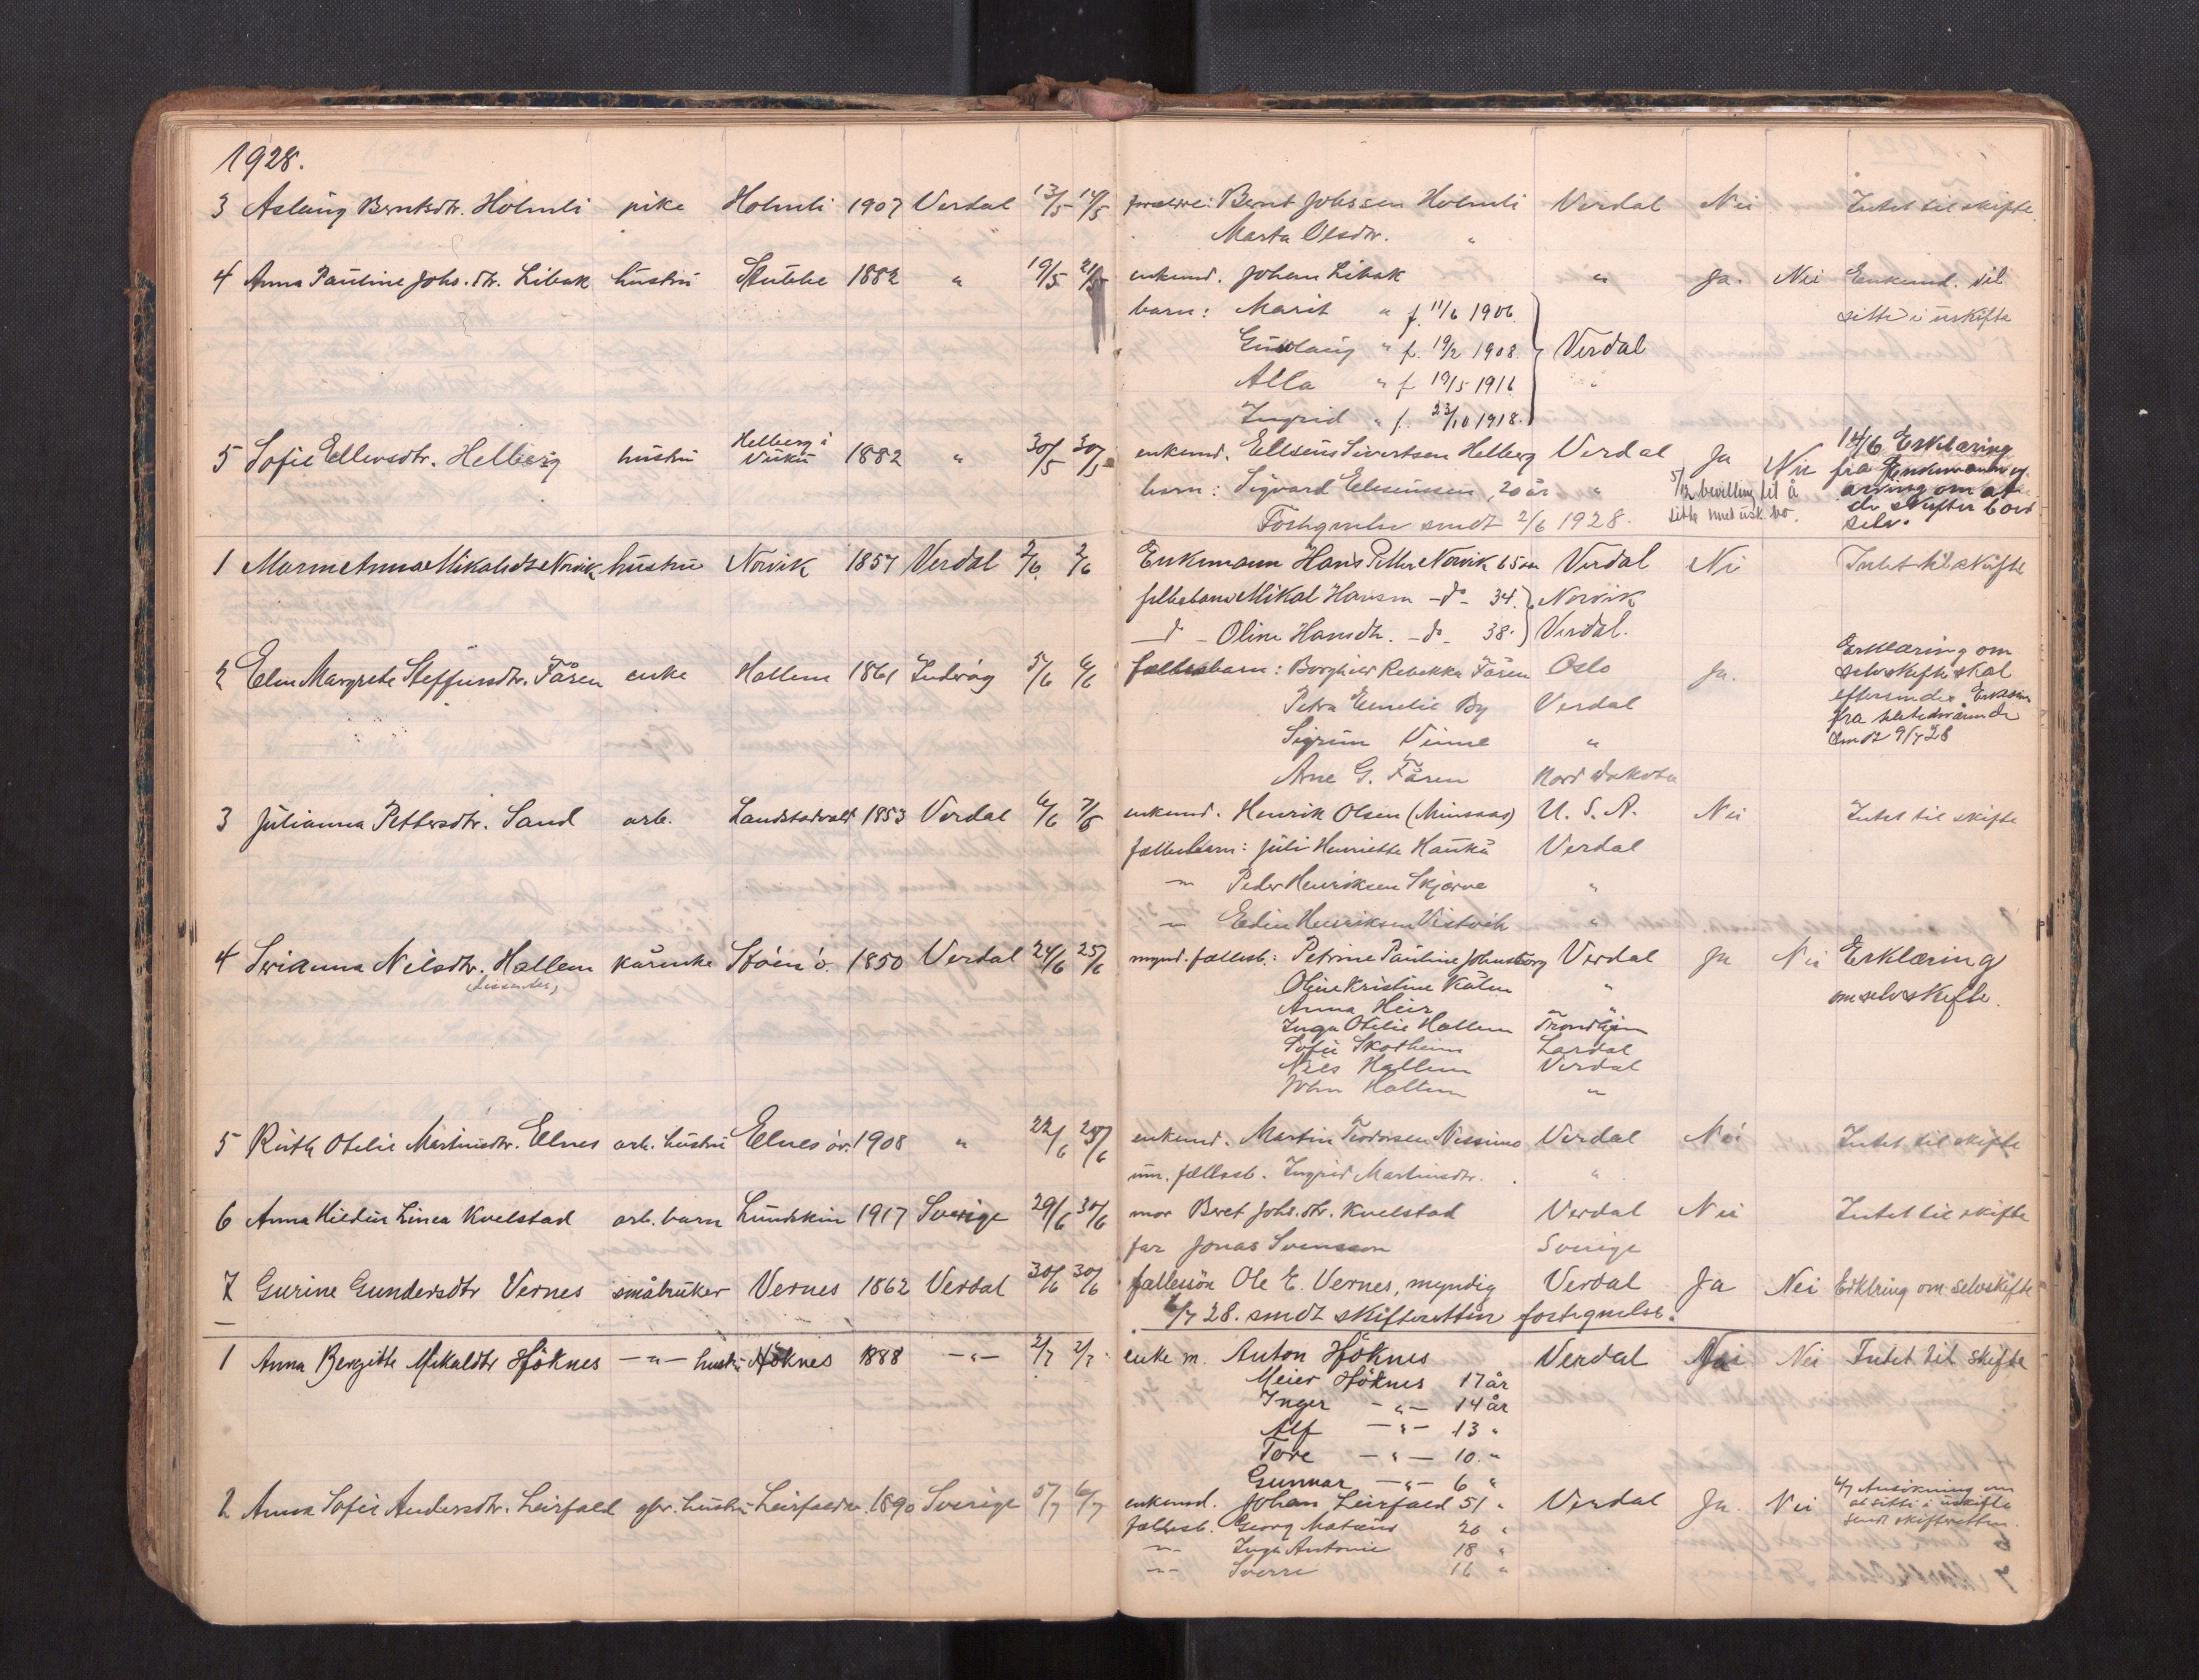 1928.
3 Aslaug Berntsdtr. Holmli pike Holmli 1907 Verdal 13/5 14/5 foreldre: Bernt Johssen Holmli Verdal Nei Intet til skifte
Marta Olsdtr. "
4 Anna Pauline Johs.dtr. Libak hustru Stubbe 1882 " 19/5 21/5 enkemd. Johan Libak " Ja. Nei Enkemd. vil
barn: Marit " f. 11/6 1906. sitte i uskifte
Gudlaug " f. 19/2 1908. Verdal
Alla " f 19/5 1916 "
Ingrid " f. 23/10 1918.
5 Sofie Ellevsdtr. Helberg hustru Helberg i Vuku 1882 " 30/5 30/5 enkemd. Ellseus Sivertsen Helberg Verdal Ja Nei 14/6 Erklæring
fra Enkemannen og
barn: Sigvard Elseussen, 20 år " 5/12 bevilling til å arving om at
sitte med usk. bo. de skifter boet
Fortegnelse sendt 2/6 1928. selv.
1 Maren Anna Mikalsdt Norvik hustru Norvik 1857 Verdal 2/6 2/6 Enkemann Hans Petter Norvik 65 år Verdal Nei Intet til skifte
fellesbarn Mikal Hansen -do- 34. Norvik
-d- Oline Hansdtr. -do- 38. Verdal.
2 Elen Margrete Steffensdtr. Fåren enke Hallem 1861 Inderöy 5/6 6/6 fællesbarn: Borghild Rebekka Fåren Oslo Ja. Erklæring om
selvskifte skal
Petra Emelie By Verdal eftersendes Erklærin
fra
Sigrun Vinne " sendt 9/7 28
Arne G. Fåren Nord Dakota
3 Julianna Pettersdtr. Sand arb. Landstadvald 1853 Verdal 6/6 7/6 enkemd. Henrik Olsen (Minsaas) U. S. A. Nei Intet til skifte
fællesbarn: Juli Henriette Haukå Verdal
-"- Peder Henriksen Skjørve "
-"- Edin Henriksen Vistvik "
4 Serianna Nilsdtr. Hallem kårenke Stöen ö. 1850 Verdal 24/6 25/6 mynd. fællesb.: Petrine Pauline Johnsborg Verdal Ja Nei Erklæring
(dissenter) Oline Kristine Kålen " om selvskifte.
Anna Heir " "
Inga Otelie Hallem Trondhjem
Sofie Skotheim Lardal
Nils Hallem Verdal
John Hallem "
5 Ruth Otelie Martinsdtr. Elnes arb. hustru Elnes öv. 1908 " 22/6 25/6 enkemd. Martin Teodorsen Nessimo Verdal Nei Intet til skifte
um. fællesb. Ingrid Martinsdtr. "
6 Anna Hildur Linea Kvelstad arb. barn Lundskin 1917 Sverige 29/6 30/6 mor Beret Johs.dtr. Kvelstad Verdal Nei Intet til skifte
far Jonas Svensson Sverige
7 Gurine Gundersdtr Vernes småbruker Vernes 1862 Verdal 30/6 30/6 fellessön Ole E. Vernes, myndig Verdal Ja Nei Erklring om selvskifte
6/7 28. sendt skifteretten fortegnelse.
1 Anna Bergitte Mikaldtr Höknes -"- hustru Höknes 1888 -"- 2/7 2/7 enke m. Anton Höknes Verdal Nei Nei Intet til skifte
Meier Höknes 17 år
Inger -"- 14 år
Alf -"- 13 "
Tore -"- 10 "
Gunnar -"- 6 "
2 Anna Sofie Andersdtr. Leirfald gbr. hustru Leirfald v. 1890 Sverige 5/7 6/7 enkemd. Johan Leirfald 51 " Verdal Ja. Nei 6/7 Ansökning om
at sitte i uskifte
fællesb. Georg Mateus 20 " sendt skifteretten.
-"- Inga Antonie 18 "
-"- Sverre 16 "